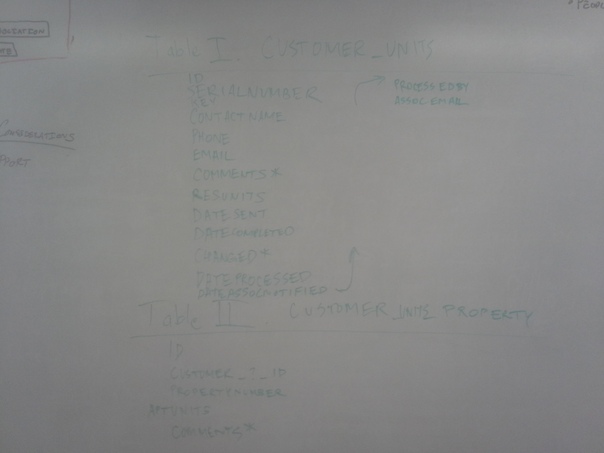 PEOPL
Table I. CUSTOMER_UNITS
ID
SERIALNUMBER
KEY
CONTACTNAME
PHONE
EMAIL
COMMENTS*
RESUNITS
DATESENT
DATECOMPLETED
CHANGED*
DATEPROCESSED
DATEASSOCNOTIFIED
PROCESSEDBY
ASSOCEMAIL
Table II. CUSTOMER_UNITS_PROPERTY
ID
PROPERTYNUMBER
COMMENTS*